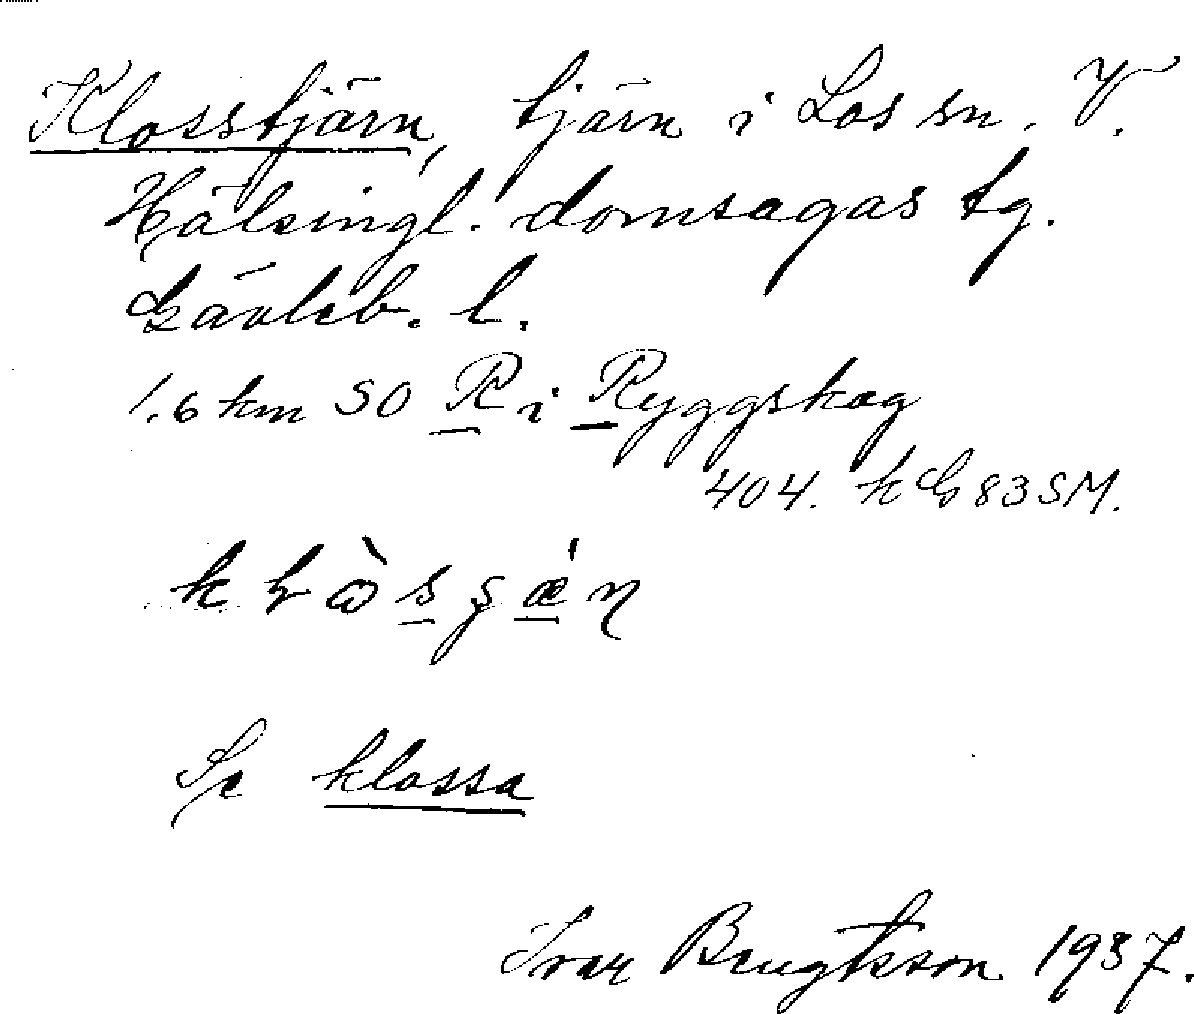 Klosstjärn, tjärn i Los sn. V.
Hälsingl. domsagas tg.
Gävleb. l.
1.6 km SO R i Ryggskog
404. k G 83 SM.
Se klossa
Ivar Bengtsson 1937.